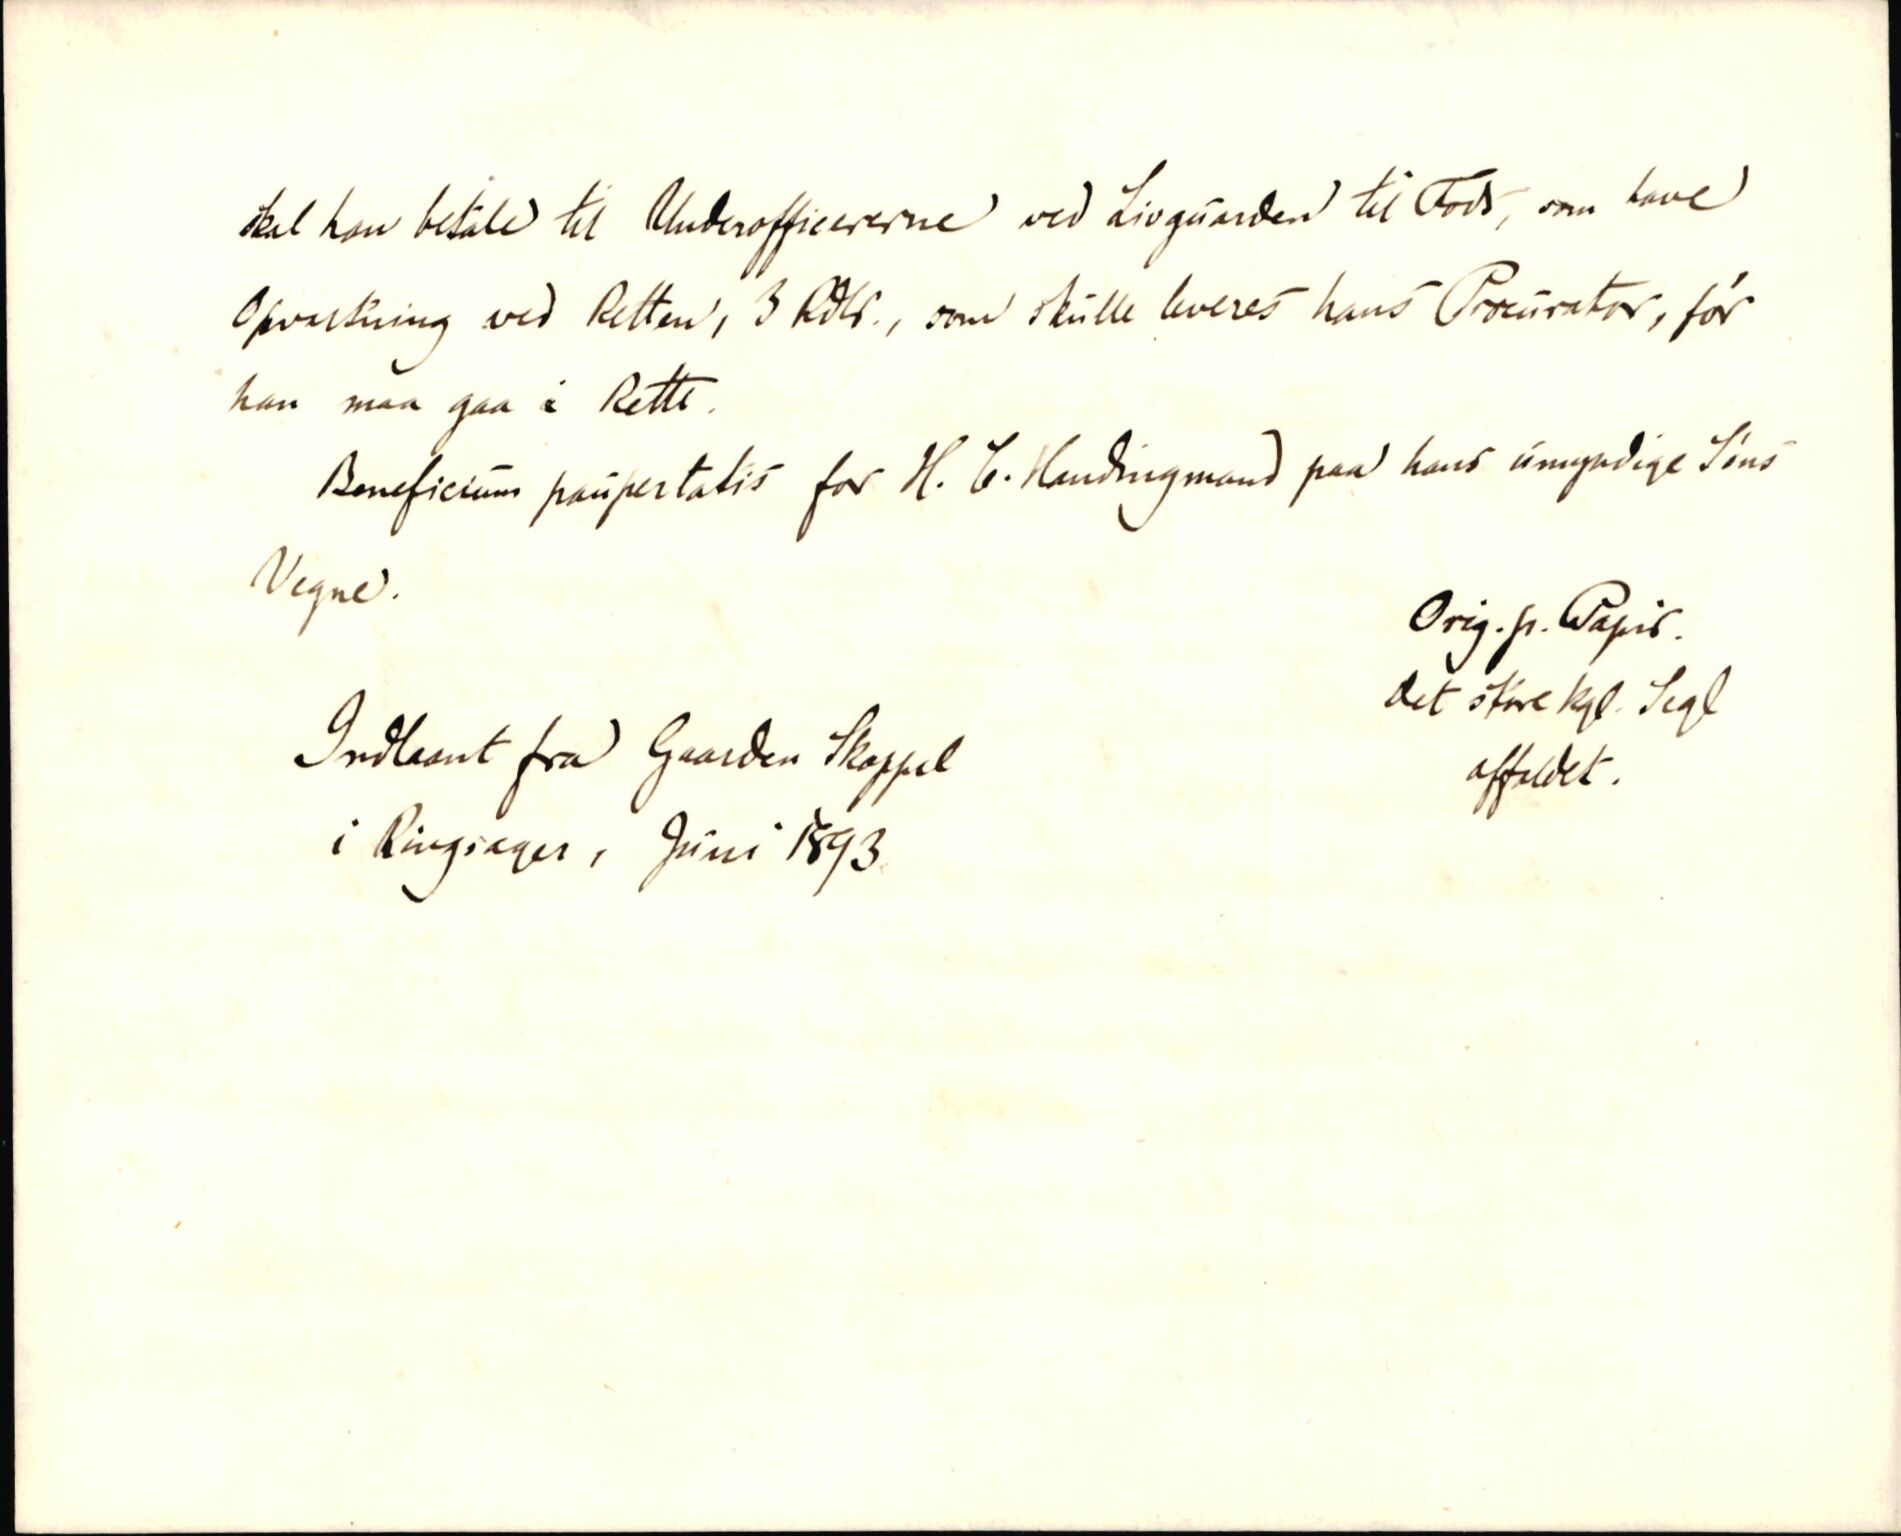 skal han betale til Underofficererne ved Livguarden til Fods, som have
Opvartning ved Retten, 3 Rdlr., som skulle leveres hans Procurator, før
han maa gaa i Rette.
Beneficium paupertatis for H. C. Handingmand paa hans umyndige Søns
Vegne.
Orig. p. Papir.
Det store kgl. Segl
affaldet.
Indlaant fra Gaarden Skappel
i Ringsager, Juni 1893.